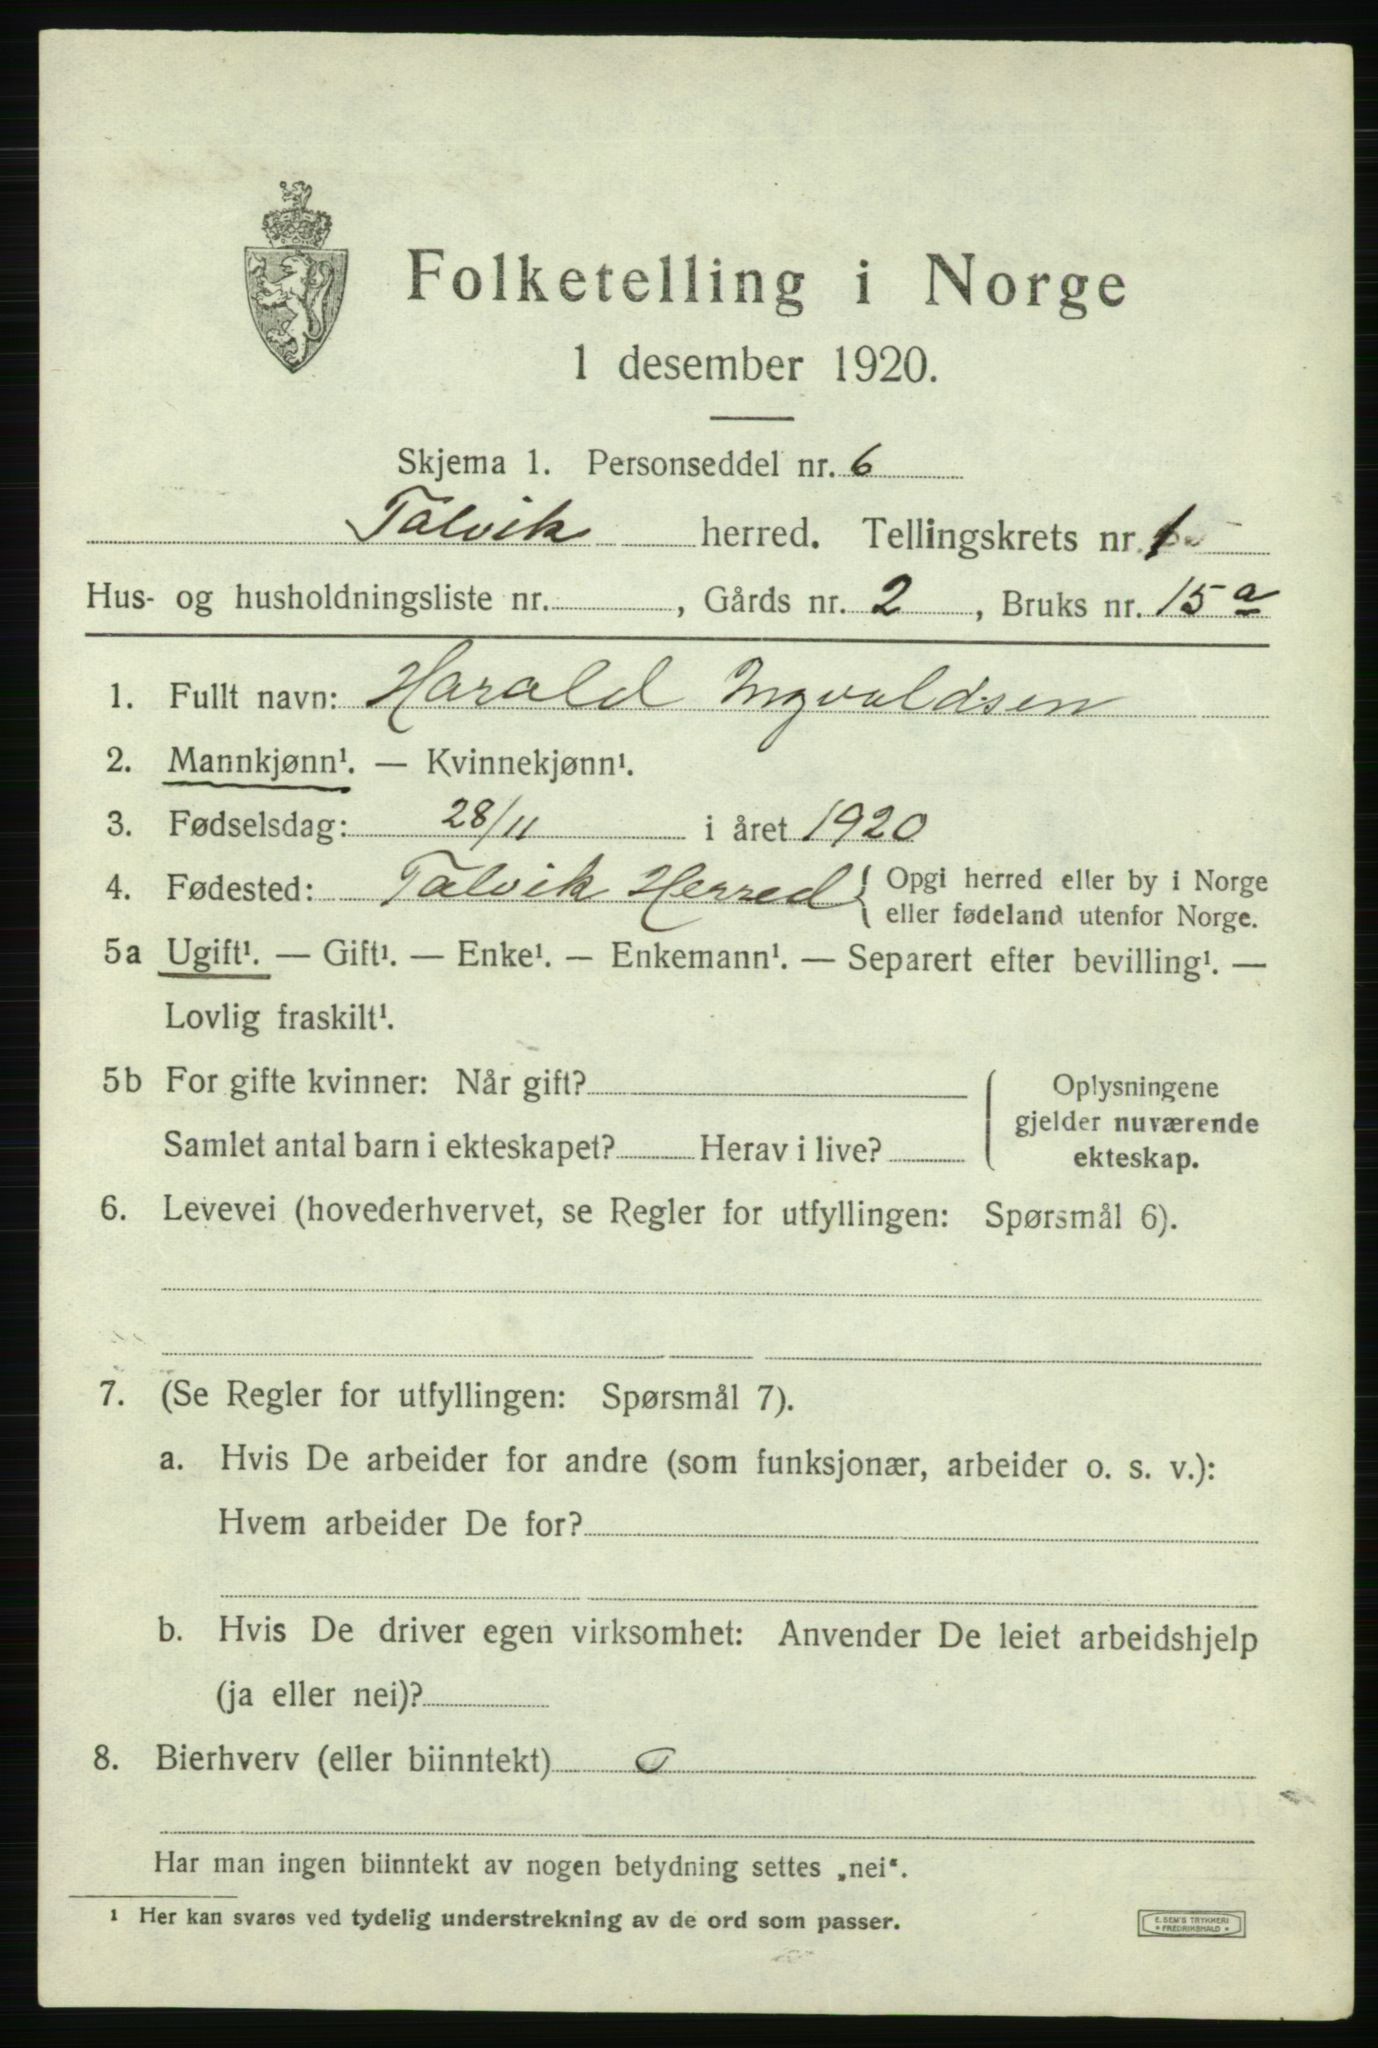 Folketelling i Norge
1 desember 1920.
Skjema 1. Personseddel nr. 6
Talvik herred. Tellingskrets nr. 1
Hus- og husholdningsliste nr. , Gårds nr. 2 , Bruks nr. 15 a
1. Fullt navn: Harald Ingvaldsen
2. Mannkjønn¹. — Kvinnekjønn¹.
3. Fødselsdag: 28/11 i året 1920
4. Fødested: Talvik Herred { Opgi herred eller by i Norge
eller fødeland utenfor Norge.
5a Ugift¹. — Gift¹. — Enke¹. — Enkemann¹. — Separert efter bevilling¹. —
Lovlig fraskilt¹.
5b For gifte kvinner: Når gift?
Samlet antal barn i ekteskapet? Herav i live?
Oplysningene
gjelder nuværende
ekteskap.
6. Levevei (hovederhvervet, se Regler for utfyllingen: Spørsmål 6).
7. (Se Regler for utfyllingen: Spørsmål 7).
a. Hvis De arbeider for andre (som funksjonær, arbeider o. s. v.):
Hvem arbeider De for?
b. Hvis De driver egen virksomhet: Anvender De leiet arbeidshjelp
(ja eller nei)?
8. Bierhverv (eller biinntekt) 0
Har man ingen biinntekt av nogen betydning settes „nei“.
¹ Her kan svares ved tydelig understrekning av de ord som passer.
E. SEM'S TRYKKERI
* FREDRIKSHALD *